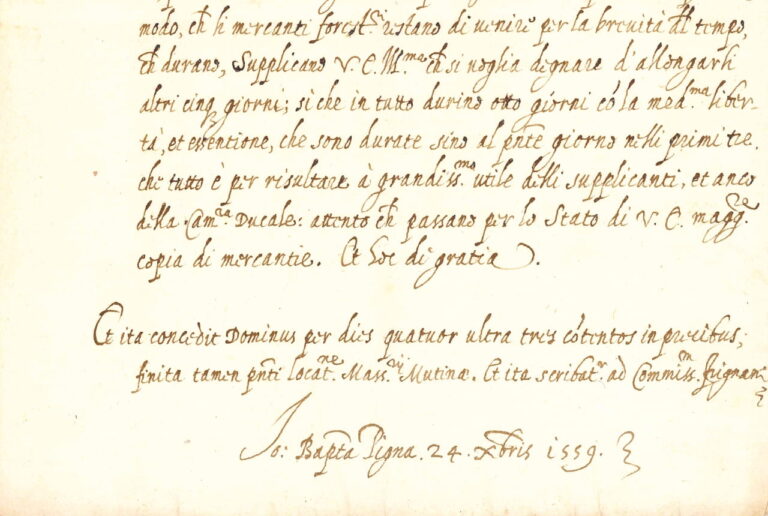 modo, ch li mercanti forest.ri restano di venire per la brevità del tempo,
ch durano, Supplicano V. E. Ill.ma ch si voglia degnare d'allongarli
altri cinq giorni; si che in tutto durino otto giorni cō la med.ma liber-
tà, et essentione, che sono durate sino al pn̄te giorno nelli primi tre.
che tutto è per risultare à grandiss.mo utile delli supplicanti, et anco
della Cam.ra Ducale: attento ch passano per lo Stato di V. E. magg.re
copia di mercantie. Et hoc di gratia.
Et ita concedit Dominus per dies quatuor ultra tres cōtentos in precibus,
finita tamen pn̄ti locat.ne Mass.rij Mutinæ. Et ita scribat.r ad Commiss.m Frignan
Jo: Bapt̄a Pigna. 24. Xbris 1559.